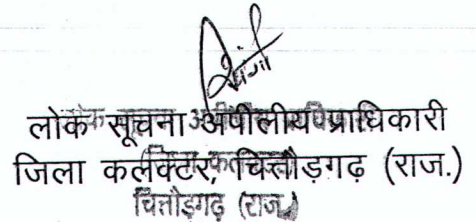 लोक सूचना अपीलीय प्राधिकारी
जिला कलक्टर, चित्तौड़गढ़ (राज.)
चित्तौड़गढ़ (राज.)